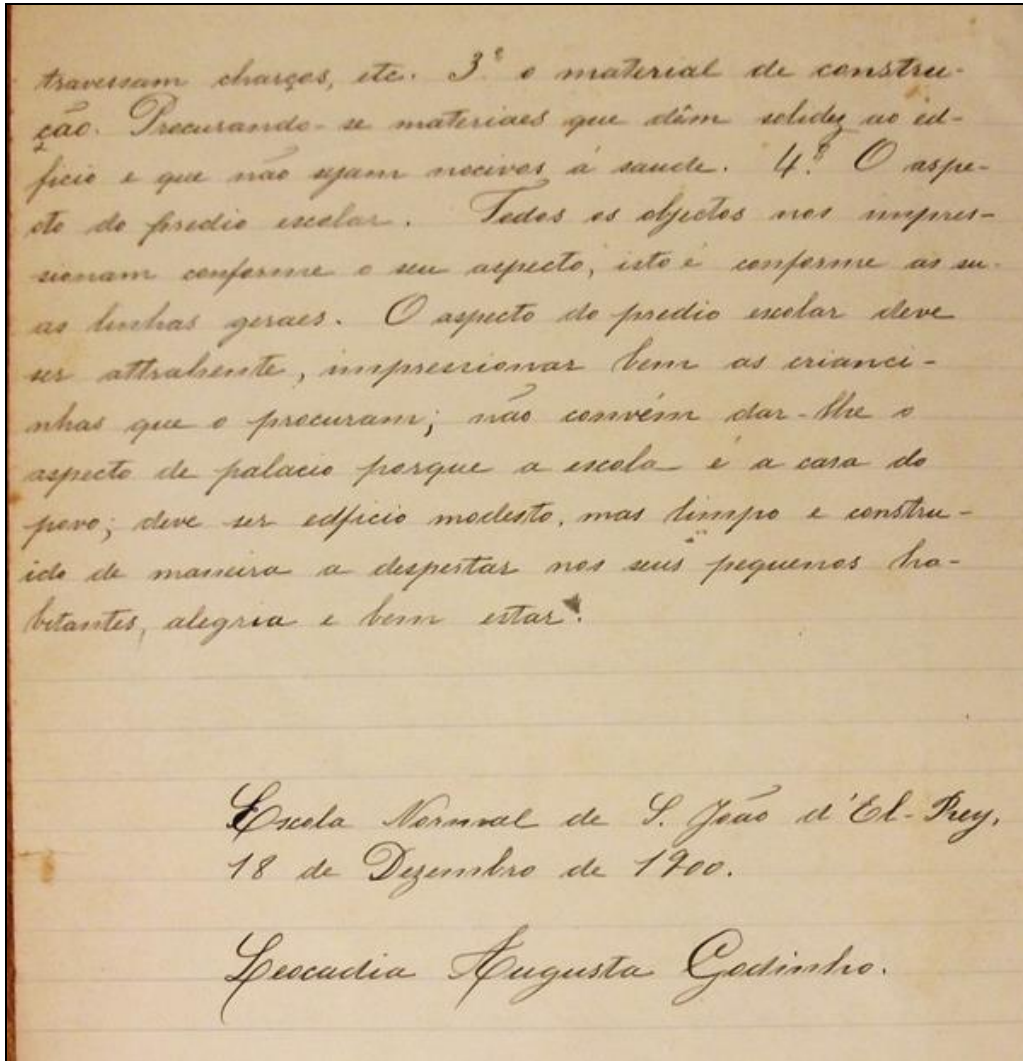 travessam charcos, etc. 3º o material de constru-
ção. Procurando-se materiaes que dêm solidez ao ed-
ficio e que não sejam nocivos á saude. 4º. O aspe-
cto do predio escolar. Todos os objectos nos impres-
sionam conforme o seu aspecto, isto é conforme as su-
as linhas geraes. O aspecto do predio escolar deve
ser attrahente, impressionar bem as crianci-
nhas que o procuram; não convém dar-lhe o
aspecto de palacio porque a escola é a casa do
povo; deve ser edficio modesto, mas limpo e constru-
ido de maneira a despertar nos seus pequenos ha-
bitantes, alegria e bem estar.
Escola Normal de S. João d'El-Rey,
18 de Dezembro de 1900.
Leocadia Augusta Godinho.